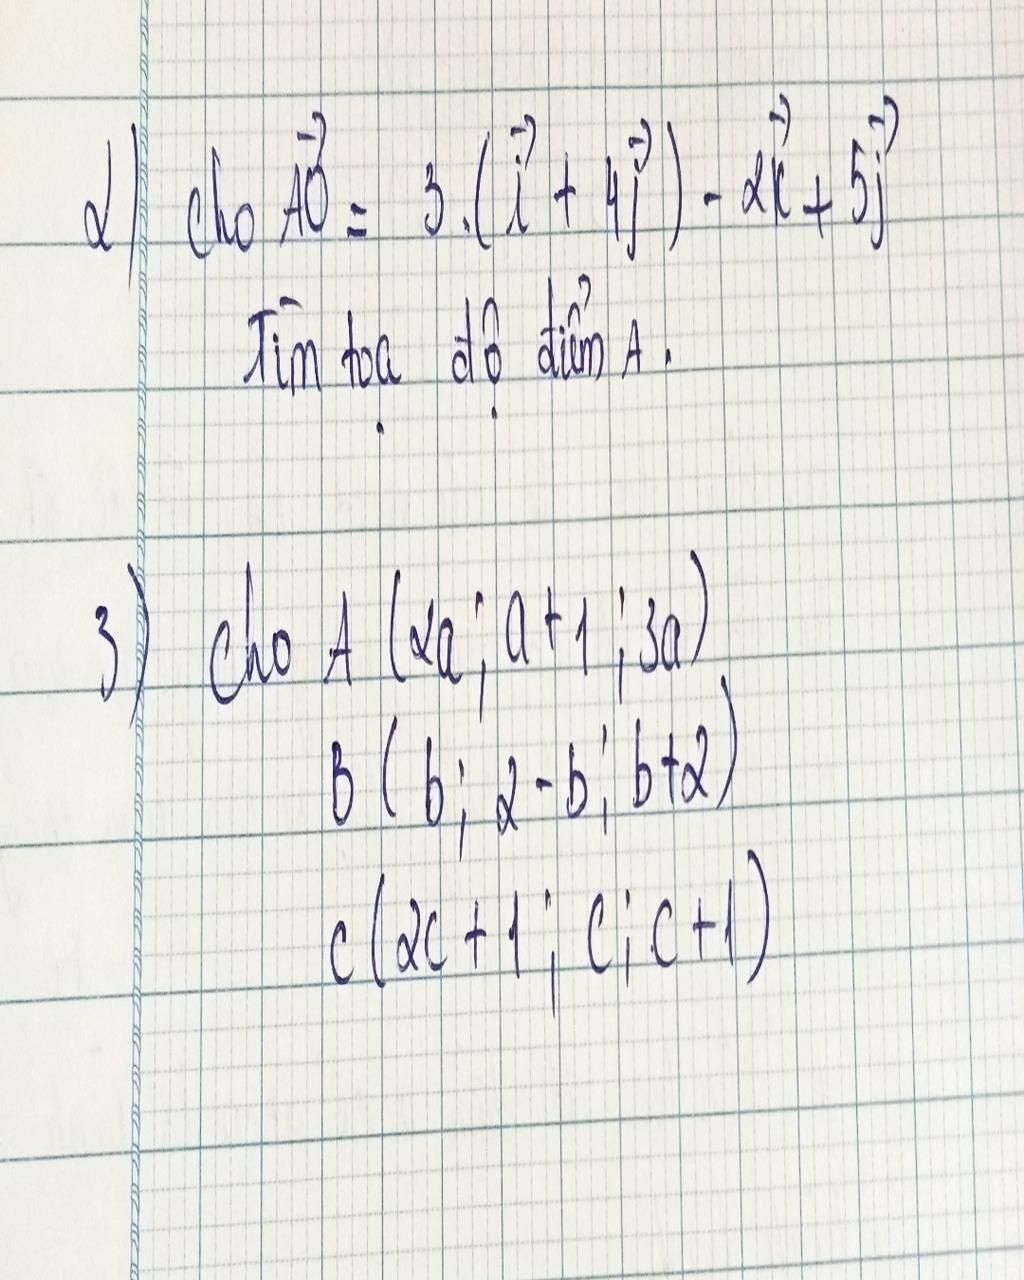 2) Cho AO⃗ = 3.(i⃗ + 4j⃗) - 2k⃗ + 5j⃗
Tìm toạ độ điểm A.
3) Cho A (2a; a+1; 3a)
B (b; 2-b; b+2)
C (2c+1; c; c+1)